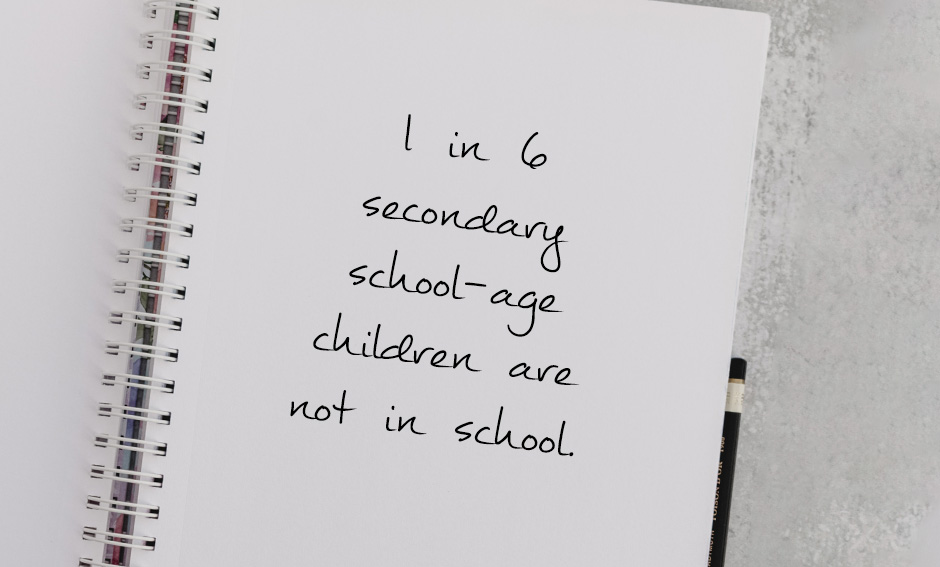 1 in 6
secondary
school-age
children are
not in school.